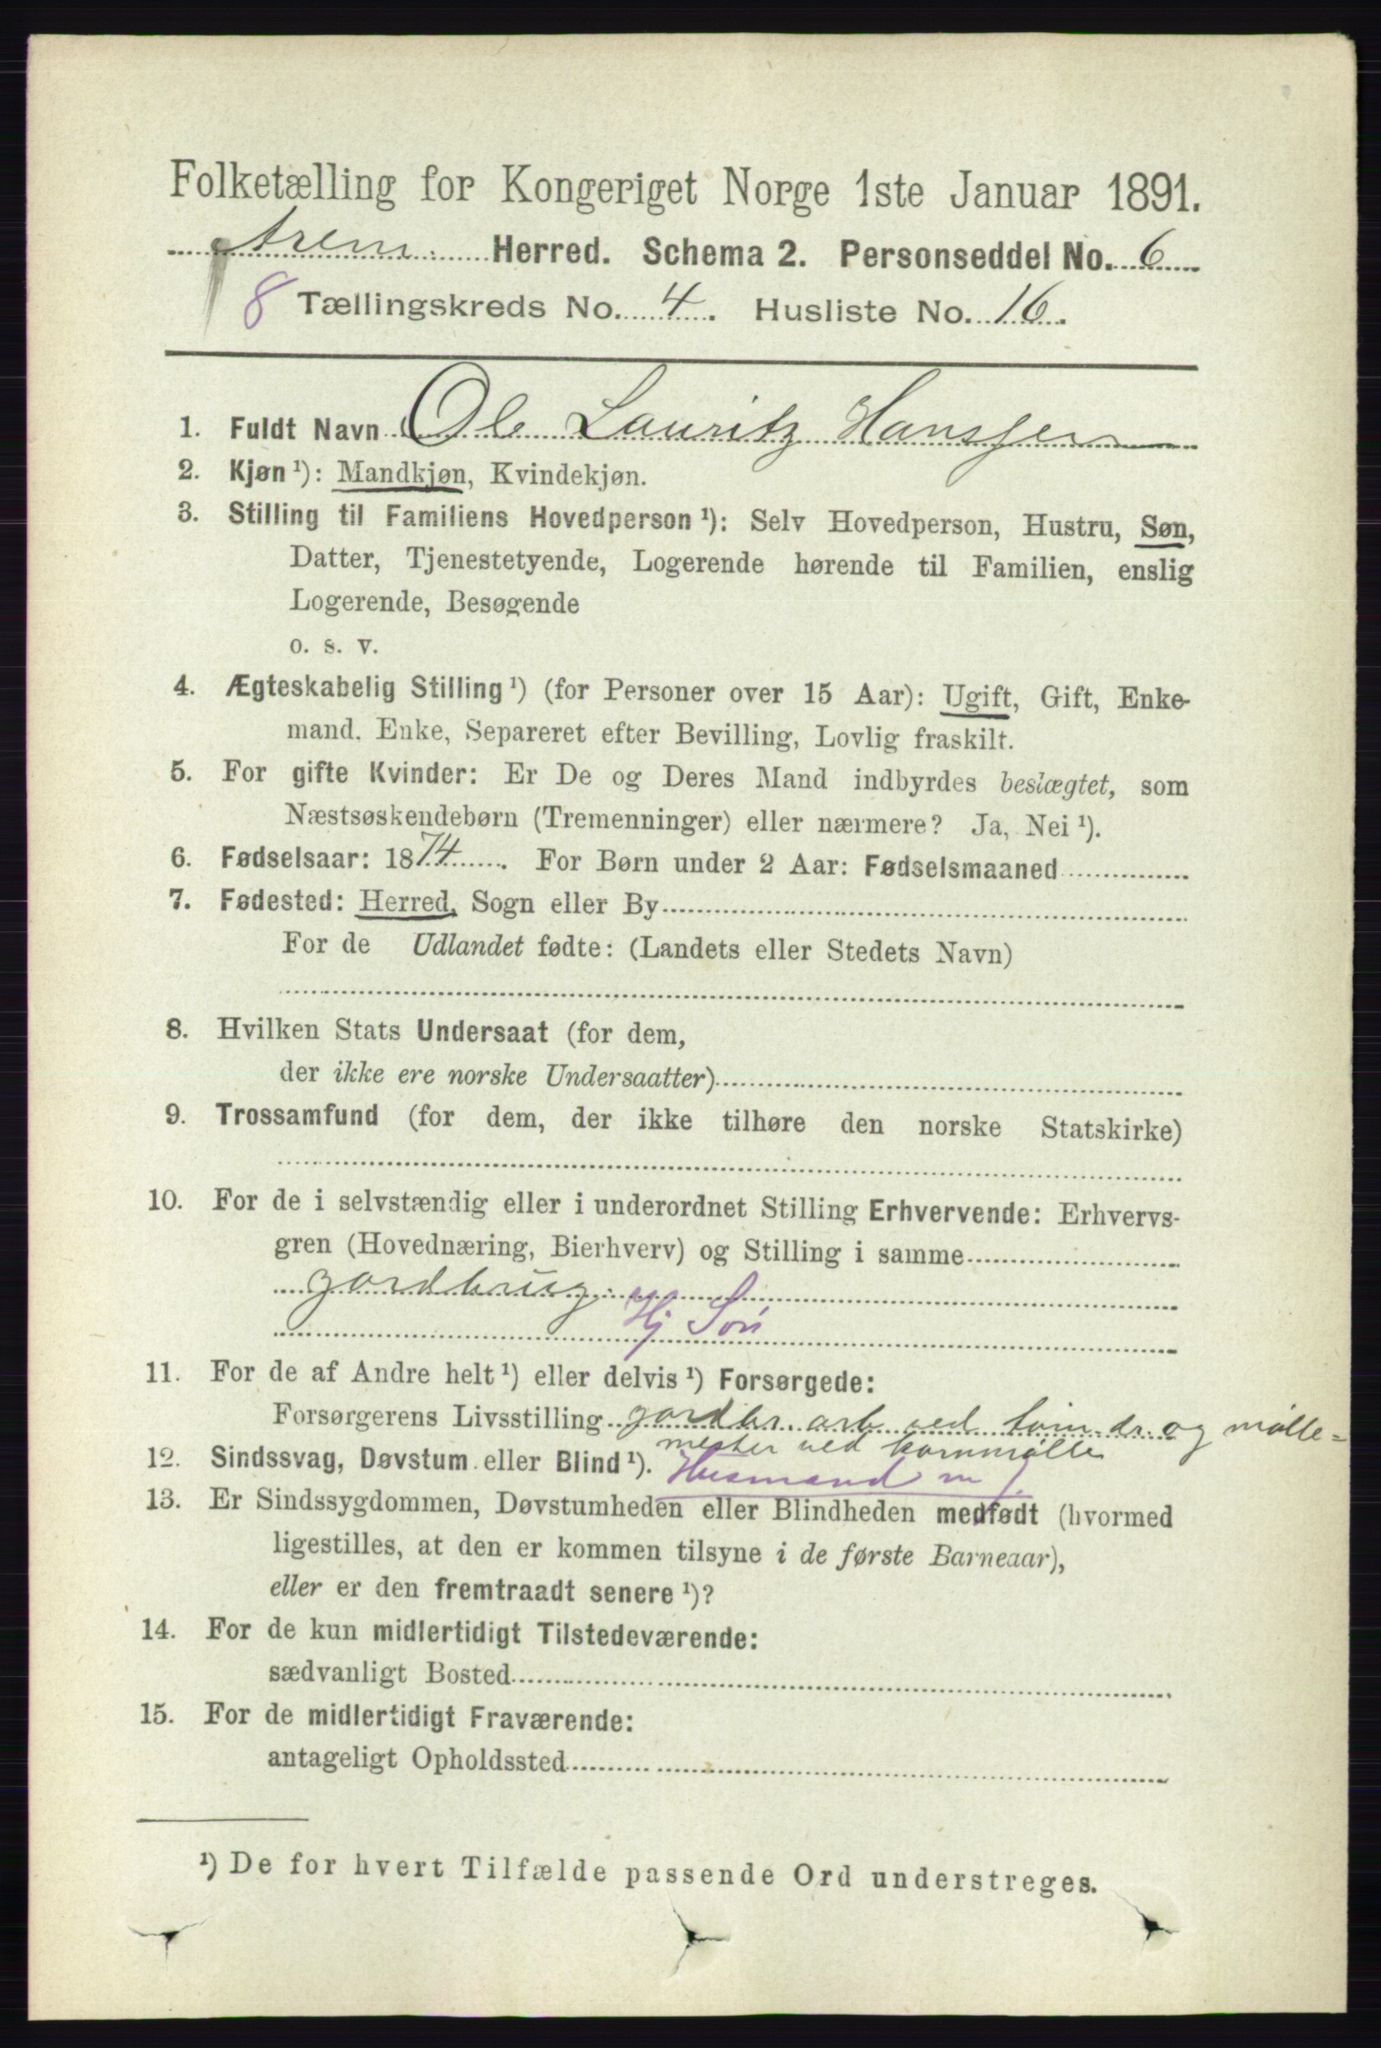 Folketælling for Kongeriget Norge 1ste Januar 1891.
Herred. Schema 2. Personseddel No. 6
8 Tællingskreds No. 4. Husliste No. 16.
1. Fuldt Navn Ole Lauritz Hanssen
2. Kjøn ¹): Mandkjøn, Kvindekjøn.
3. Stilling til Familiens Hovedperson ¹): Selv Hovedperson, Hustru, Søn,
Datter, Tjenestetyende, Logerende hørende til Familien, enslig
Logerende, Besøgende
o. s. v.
4. Ægteskabelig Stilling ¹) (for Personer over 15 Aar): Ugift, Gift, Enke-
mand, Enke, Separeret efter Bevilling, Lovlig fraskilt.
5. For gifte Kvinder: Er De og Deres Mand indbyrdes beslægtet, som
Næstsøskendebørn (Tremenninger) eller nærmere? Ja, Nei ¹).
6. Fødselsaar: 1874. For Børn under 2 Aar: Fødselsmaaned
7. Fødested: Herred, Sogn eller By
For de Udlandet fødte: (Landets eller Stedets Navn)
8. Hvilken Stats Undersaat (for dem,
der ikke ere norske Undersaatter)
9. Trossamfund (for dem, der ikke tilhøre den norske Statskirke)
10. For de i selvstændig eller i underordnet Stilling Erhvervende: Erhvervs-
gren (Hovednæring, Bierhverv) og Stilling i samme
gardbrug
Hj Søn
11. For de af Andre helt ¹) eller delvis ¹) Forsørgede:
Forsørgerens Livsstilling gardbr. arb ved og mølle=
mester ved kornmølle
12. Sindssvag, Døvstum eller Blind ¹). Husmand m J
13. Er Sindssygdommen, Døvstumheden eller Blindheden medfødt (hvormed
ligestilles, at den er kommen tilsyne i de første Barneaar),
eller er den fremtraadt senere ¹)?
14. For de kun midlertidigt Tilstedeværende:
sædvanligt Bosted
15. For de midlertidigt Fraværende:
antageligt Opholdssted
¹) De for hvert Tilfælde passende Ord understreges.